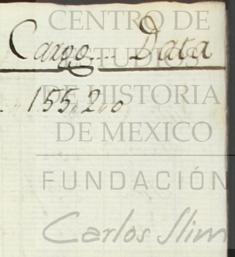 CENTRO DE
ESTUDIOS
Cargo.. Data
DE HISTORIA
155,2,,0
DE MEXICO
FUNDACIÓN
Carlos Slim